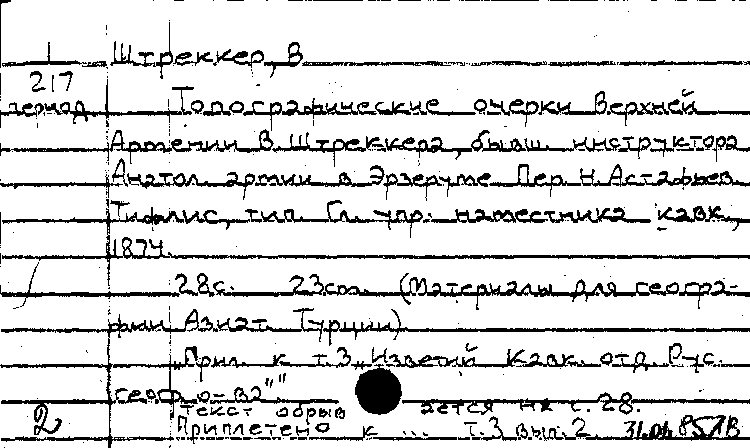 1 Штреккер, В
217
период Топографические очерки Верхней
Армении В. Штреккера, бывш. инструктора
Анатол. армии в Эрзеруме Пер. Н. Астафьев
Тифлис, тип. Гл. упр. наместника кавк.,
1874.
28с. 23см. (Материалы для геогра-
фии Азиат. Турции)
"Прил. к т.3 "Известий Кавк. отд. Рус.
геогр. о-ва""
Текст обрывается на с. 28.
2 Приплетено к ... т.3 вып. 2.